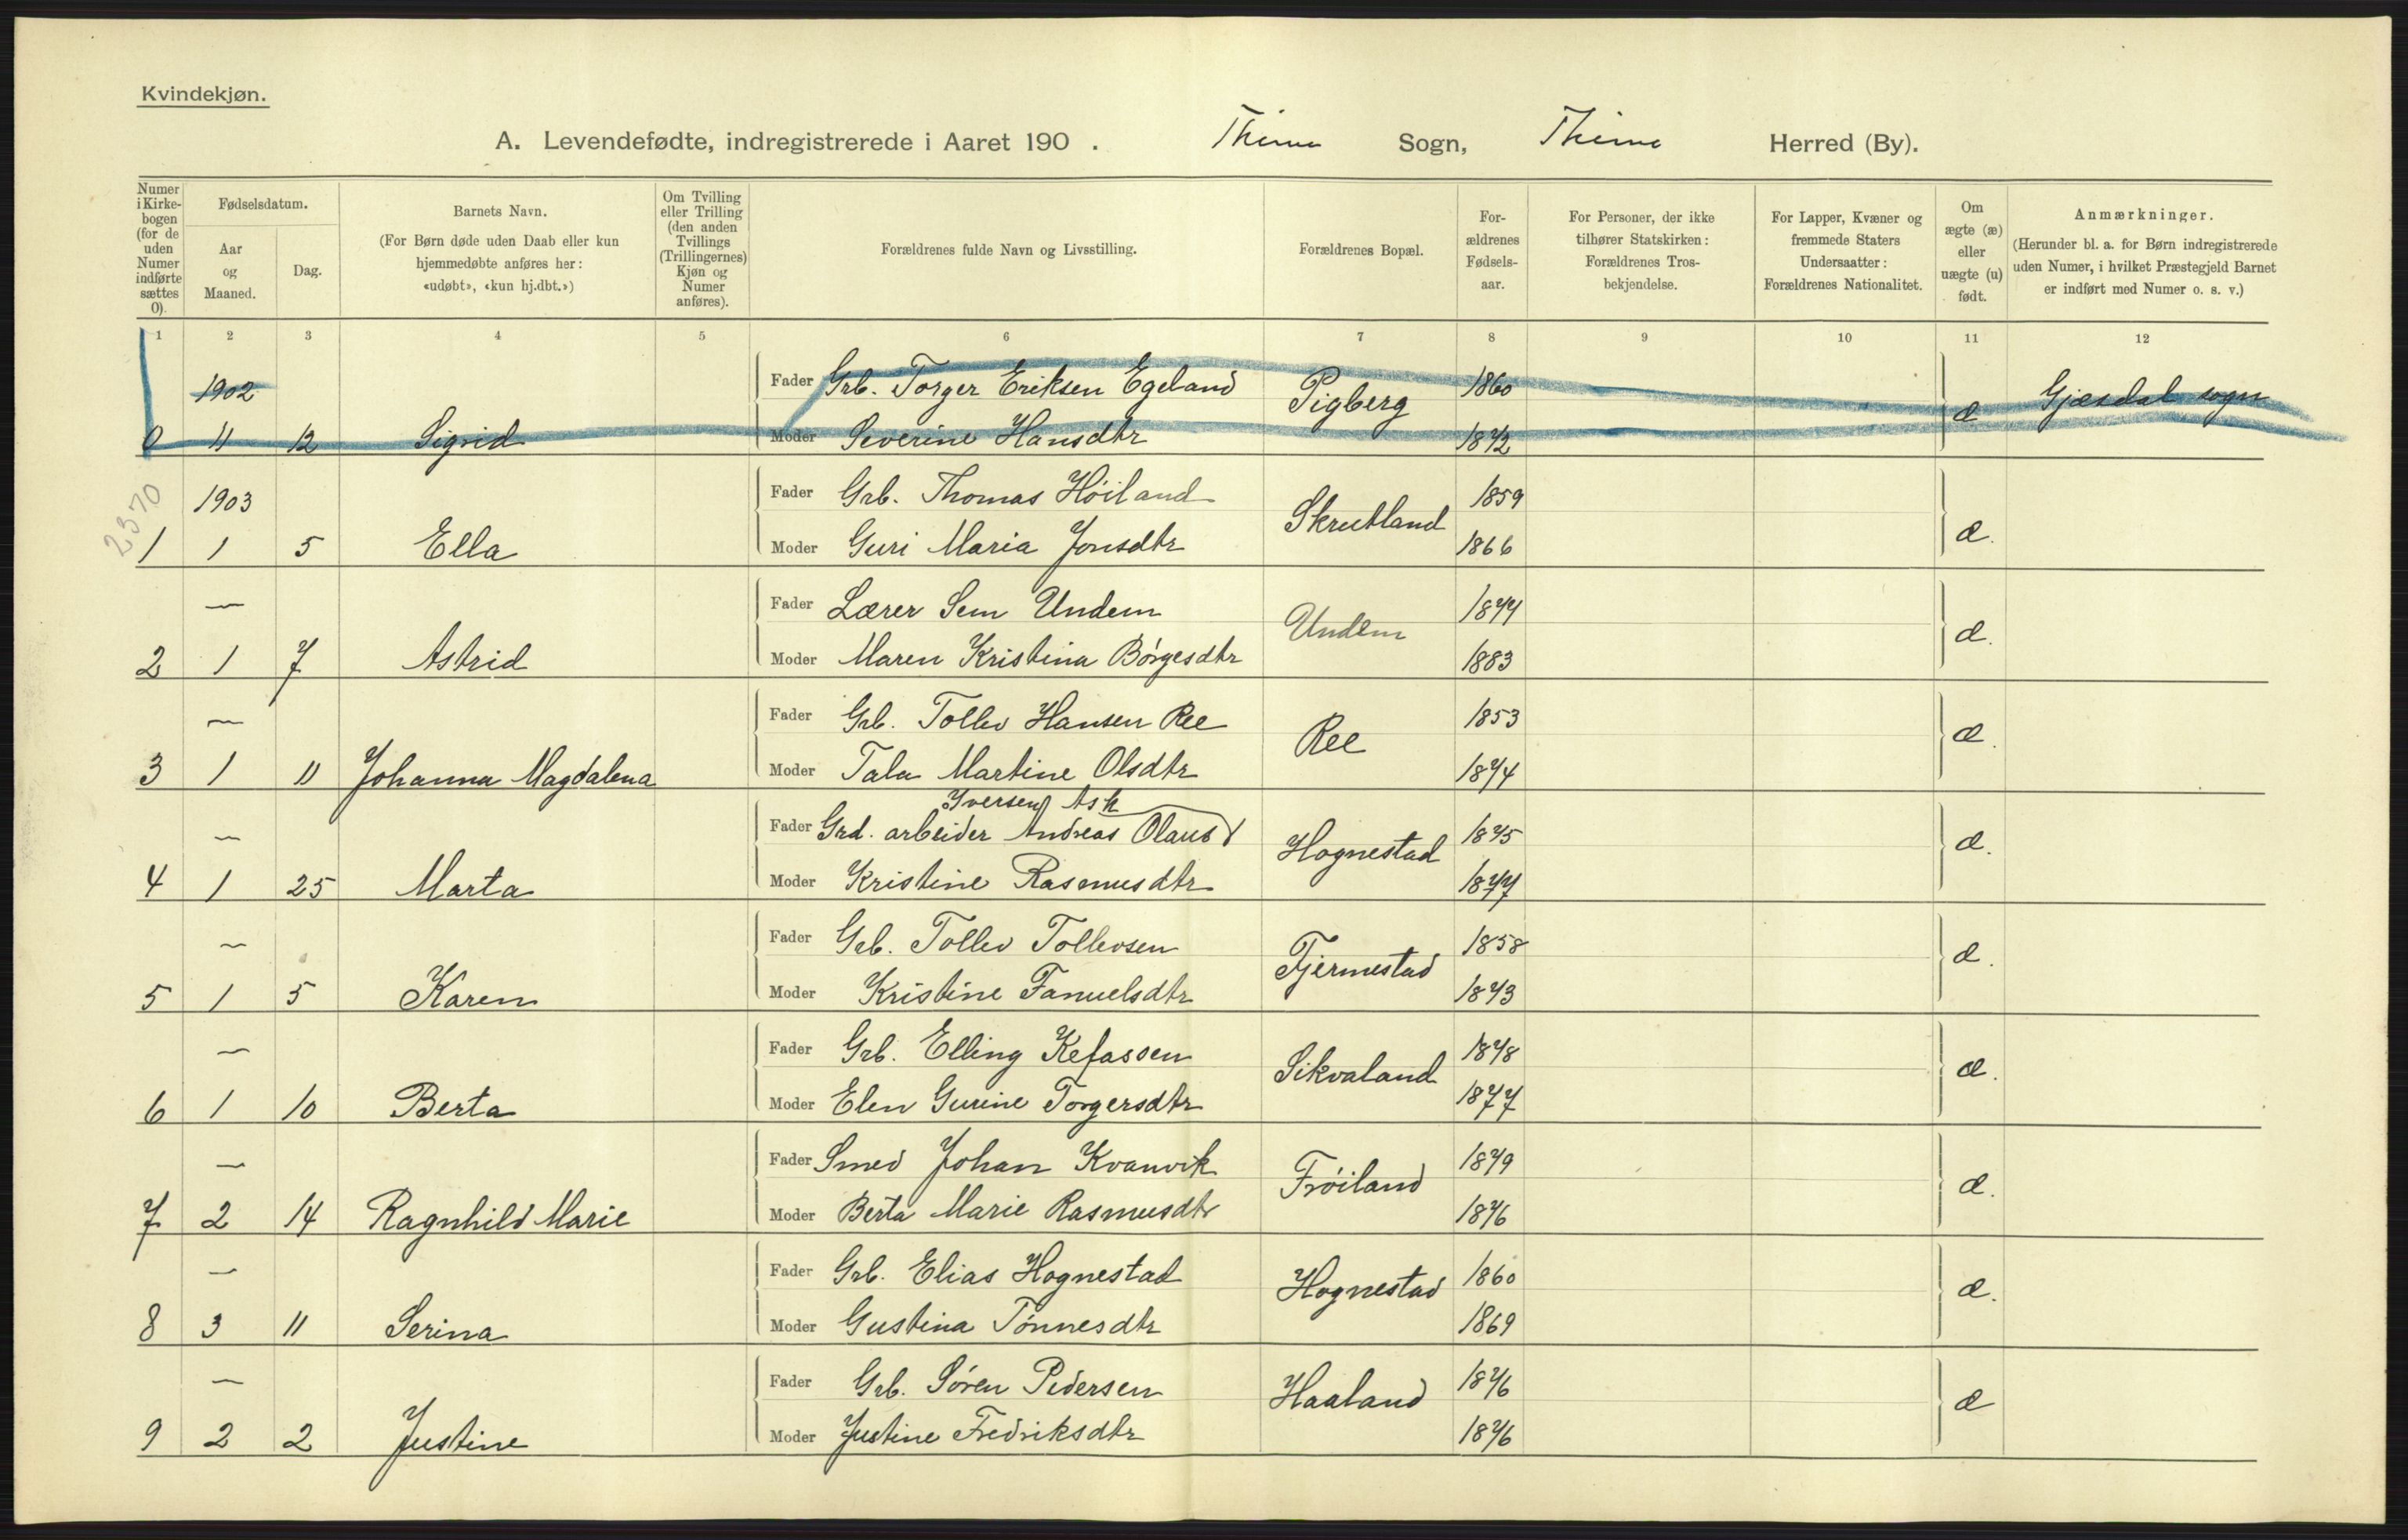 Kvindekjøn.
A. Levendefødte, indregistrerede i Aaret 190 . Thime Sogn, Thime Herred (By).
Numer i Kirkebogen (for de uden Numer indførte sættes 0).
Fødselsdatum.
Aar og Maaned.
Dag.
Barnets Navn.
(For Børn døde uden Daab eller kun hjemmedøbte anføres her: «udøbt», «kun hj.dbt.»)
Om Tvilling eller Trilling (den anden Tvillings (Trillingernes) Kjøn og Numer anføres).
Forældrenes fulde Navn og Livsstilling.
Forældrenes Bopæl.
Forældrenes Fødselsaar.
For Personer, der ikke tilhører Statskirken: Forældrenes Trosbekjendelse.
For Lapper, Kvæner og fremmede Staters Undersaatter: Forældrenes Nationalitet.
Om ægte (æ) eller uægte (u) født.
Anmærkninger.
(Herunder bl. a. for Børn indregistrerede uden Numer, i hvilket Præstegjeld Barnet er indført med Numer o. s. v.)
1 2 3 4 5 6 7 8 9 10 11 12
1902 Fader Grb. Torger Eriksen Egeland Pigberg 1860 æ Gjesdal sogn
0 11 12 Sigrid Moder Severine Hansdtr 1872
2370
1903 Fader Grb. Thomas Höiland Skrutland 1859 æ.
1 1 5 Ella Moder Guri Maria Jonsdtr 1866
— Fader Lærer Sem Undem Undem 1877 æ.
2 1 7 Astrid Moder Maren Kristina Börgesdtr 1883
— Fader Grb. Tollev Hansen Ree Ree 1853 æ.
3 1 11 Johanna Magdalena Moder Tala Martine Olsdtr 1874
Iversen Ask
— Fader Grd. arbeider Andreas Olaus Hognestad 1875 æ.
4 1 25 Marta Moder Kristine Rasmusdtr 1877
— Fader Grb. Tollev Tollevsen Tjermestad 1858 æ.
5 1 5 Karen Moder Kristine Fanuelsdtr 1873
— Fader Grb. Elling Kefassen Sikvaland 1878 æ.
6 1 10 Berta Moder Elen Gurine Torgersdtr 1877
— Fader Smed Johan Kvanvik Fröiland 1879 æ.
7 2 14 Ragnhild Marie Moder Berta Marie Rasmusdtr 1876
— Fader Grb. Elias Hognestad Hognestad 1860 æ.
8 3 11 Serina Moder Gustina Tönnesdtr 1869
— Fader Grb. Sören Pedersen Haaland 1876 æ
9 2 2 Justine Moder Justine Fredriksdtr 1876